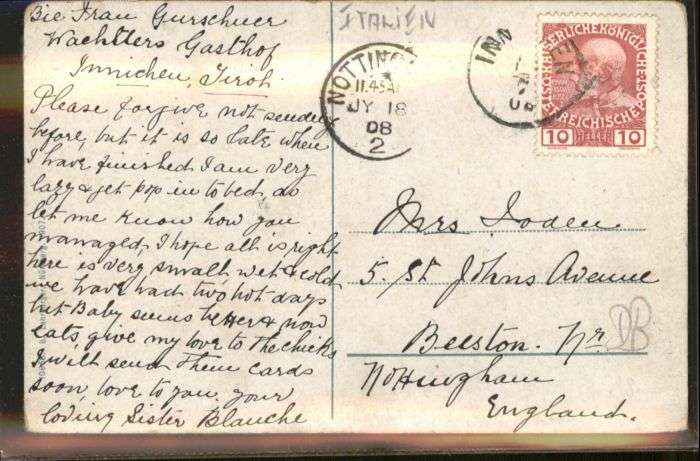 Bie Frau Gurschner
Wachtlers Gasthof
Innichen, Tirol
Please forgive not sending
before, but it is so late when
I have finished I am very
lazy & get pop in to bed, do
let me know how you
managed, I hope all is right
here is very small, wet & cold
we have had two hot days
but Baby seems better & now
eats, give my love to the chicks
I will send them cards
soon, love to you. your
loving Sister Blanche
ITALIEN
NOTTING
11.45A
JY 18
08
2
INN EN
08
KAISERLICHE KÖNIGL
REICHISCHE
10 HELLER 10
Mrs. Loden
5. St Johns Avenue
Beeston. Nr.
Nottingham
England.
DB